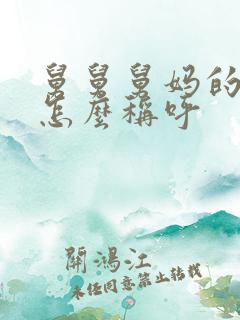 舅舅舅妈的
怎麽稱呼
開鴻江
未经同意禁止转载